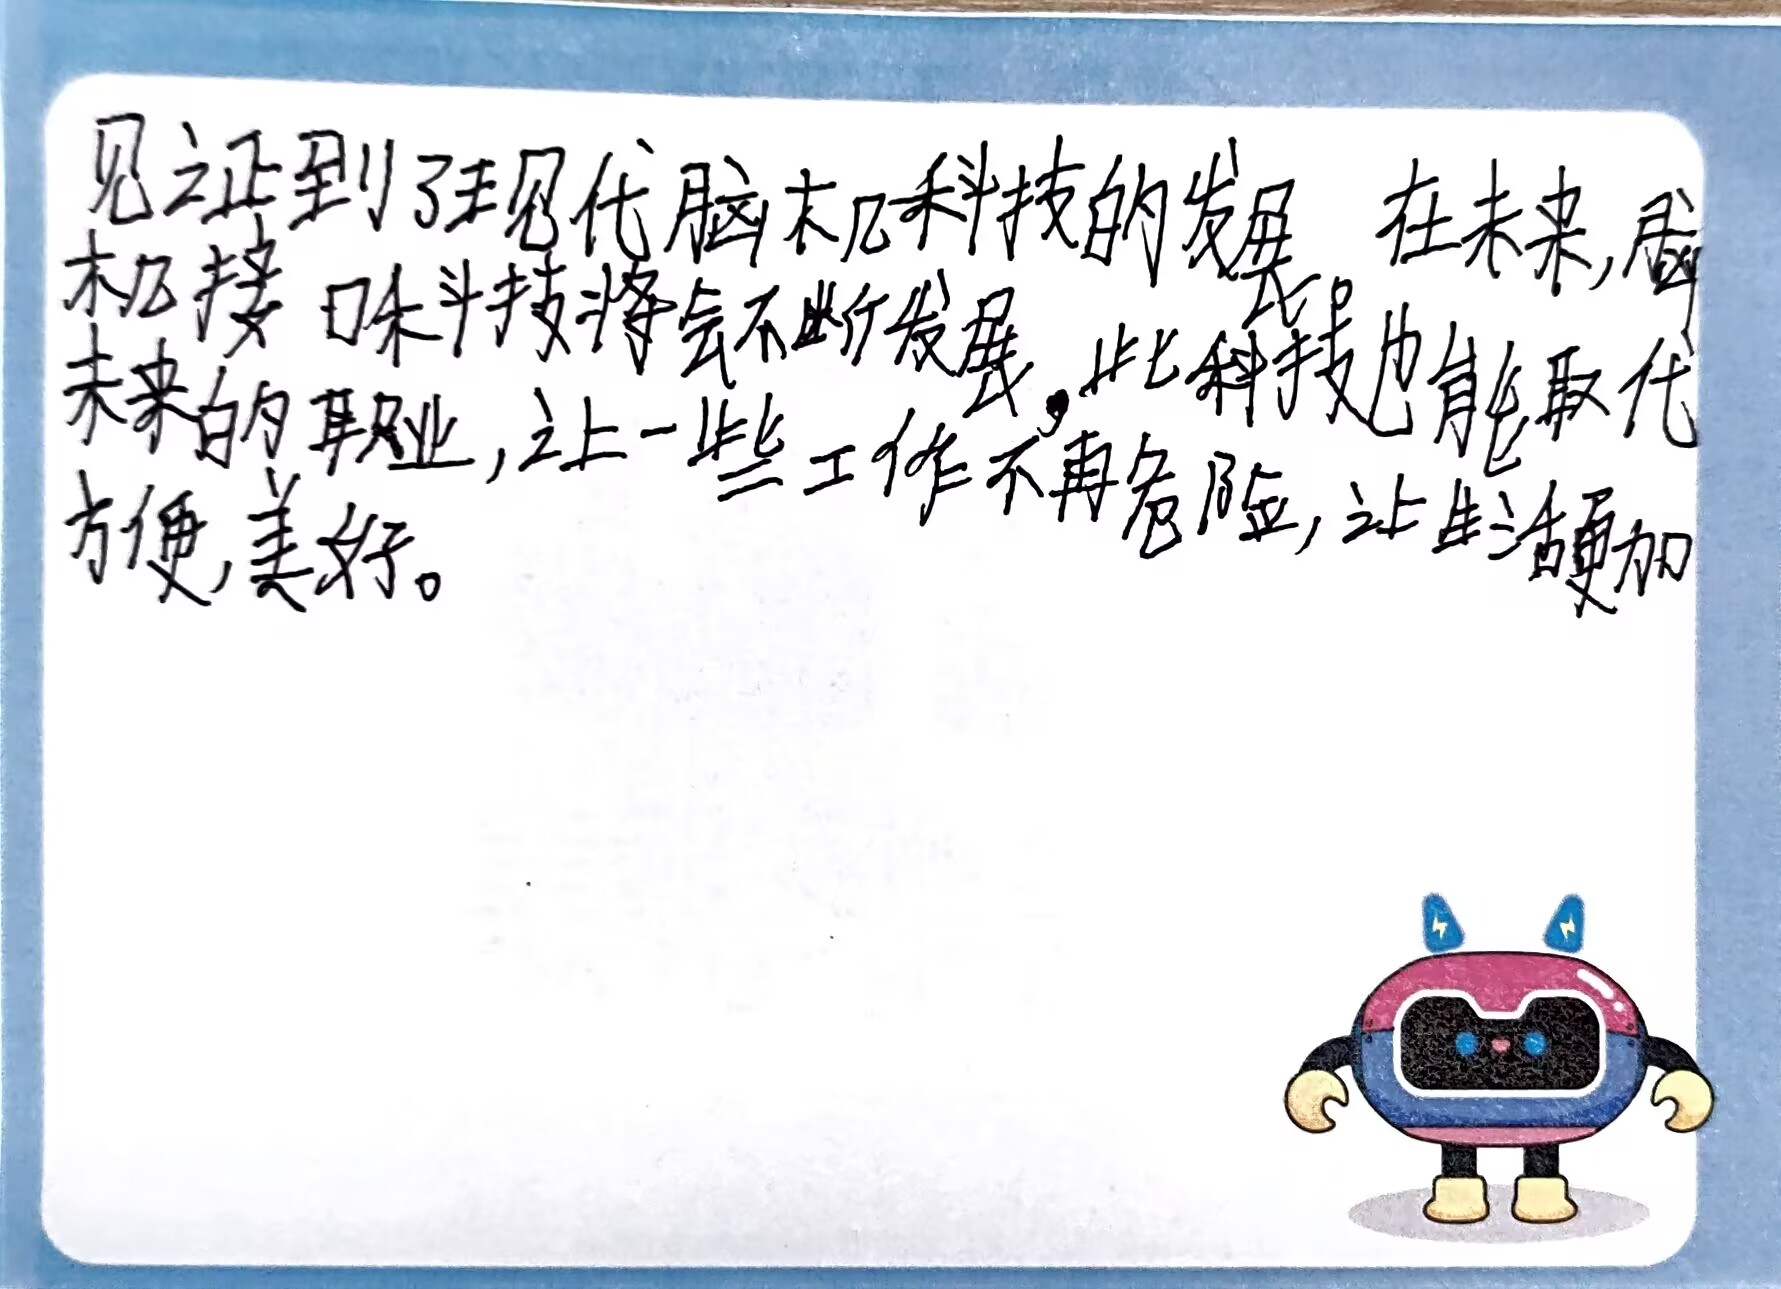 见证到了现代脑机科技的发展。在未来,脑
机接口科技将会不断发展,此科技也能取代
未来的职业,让一些工作不再危险,让生活更加
方便,美好。